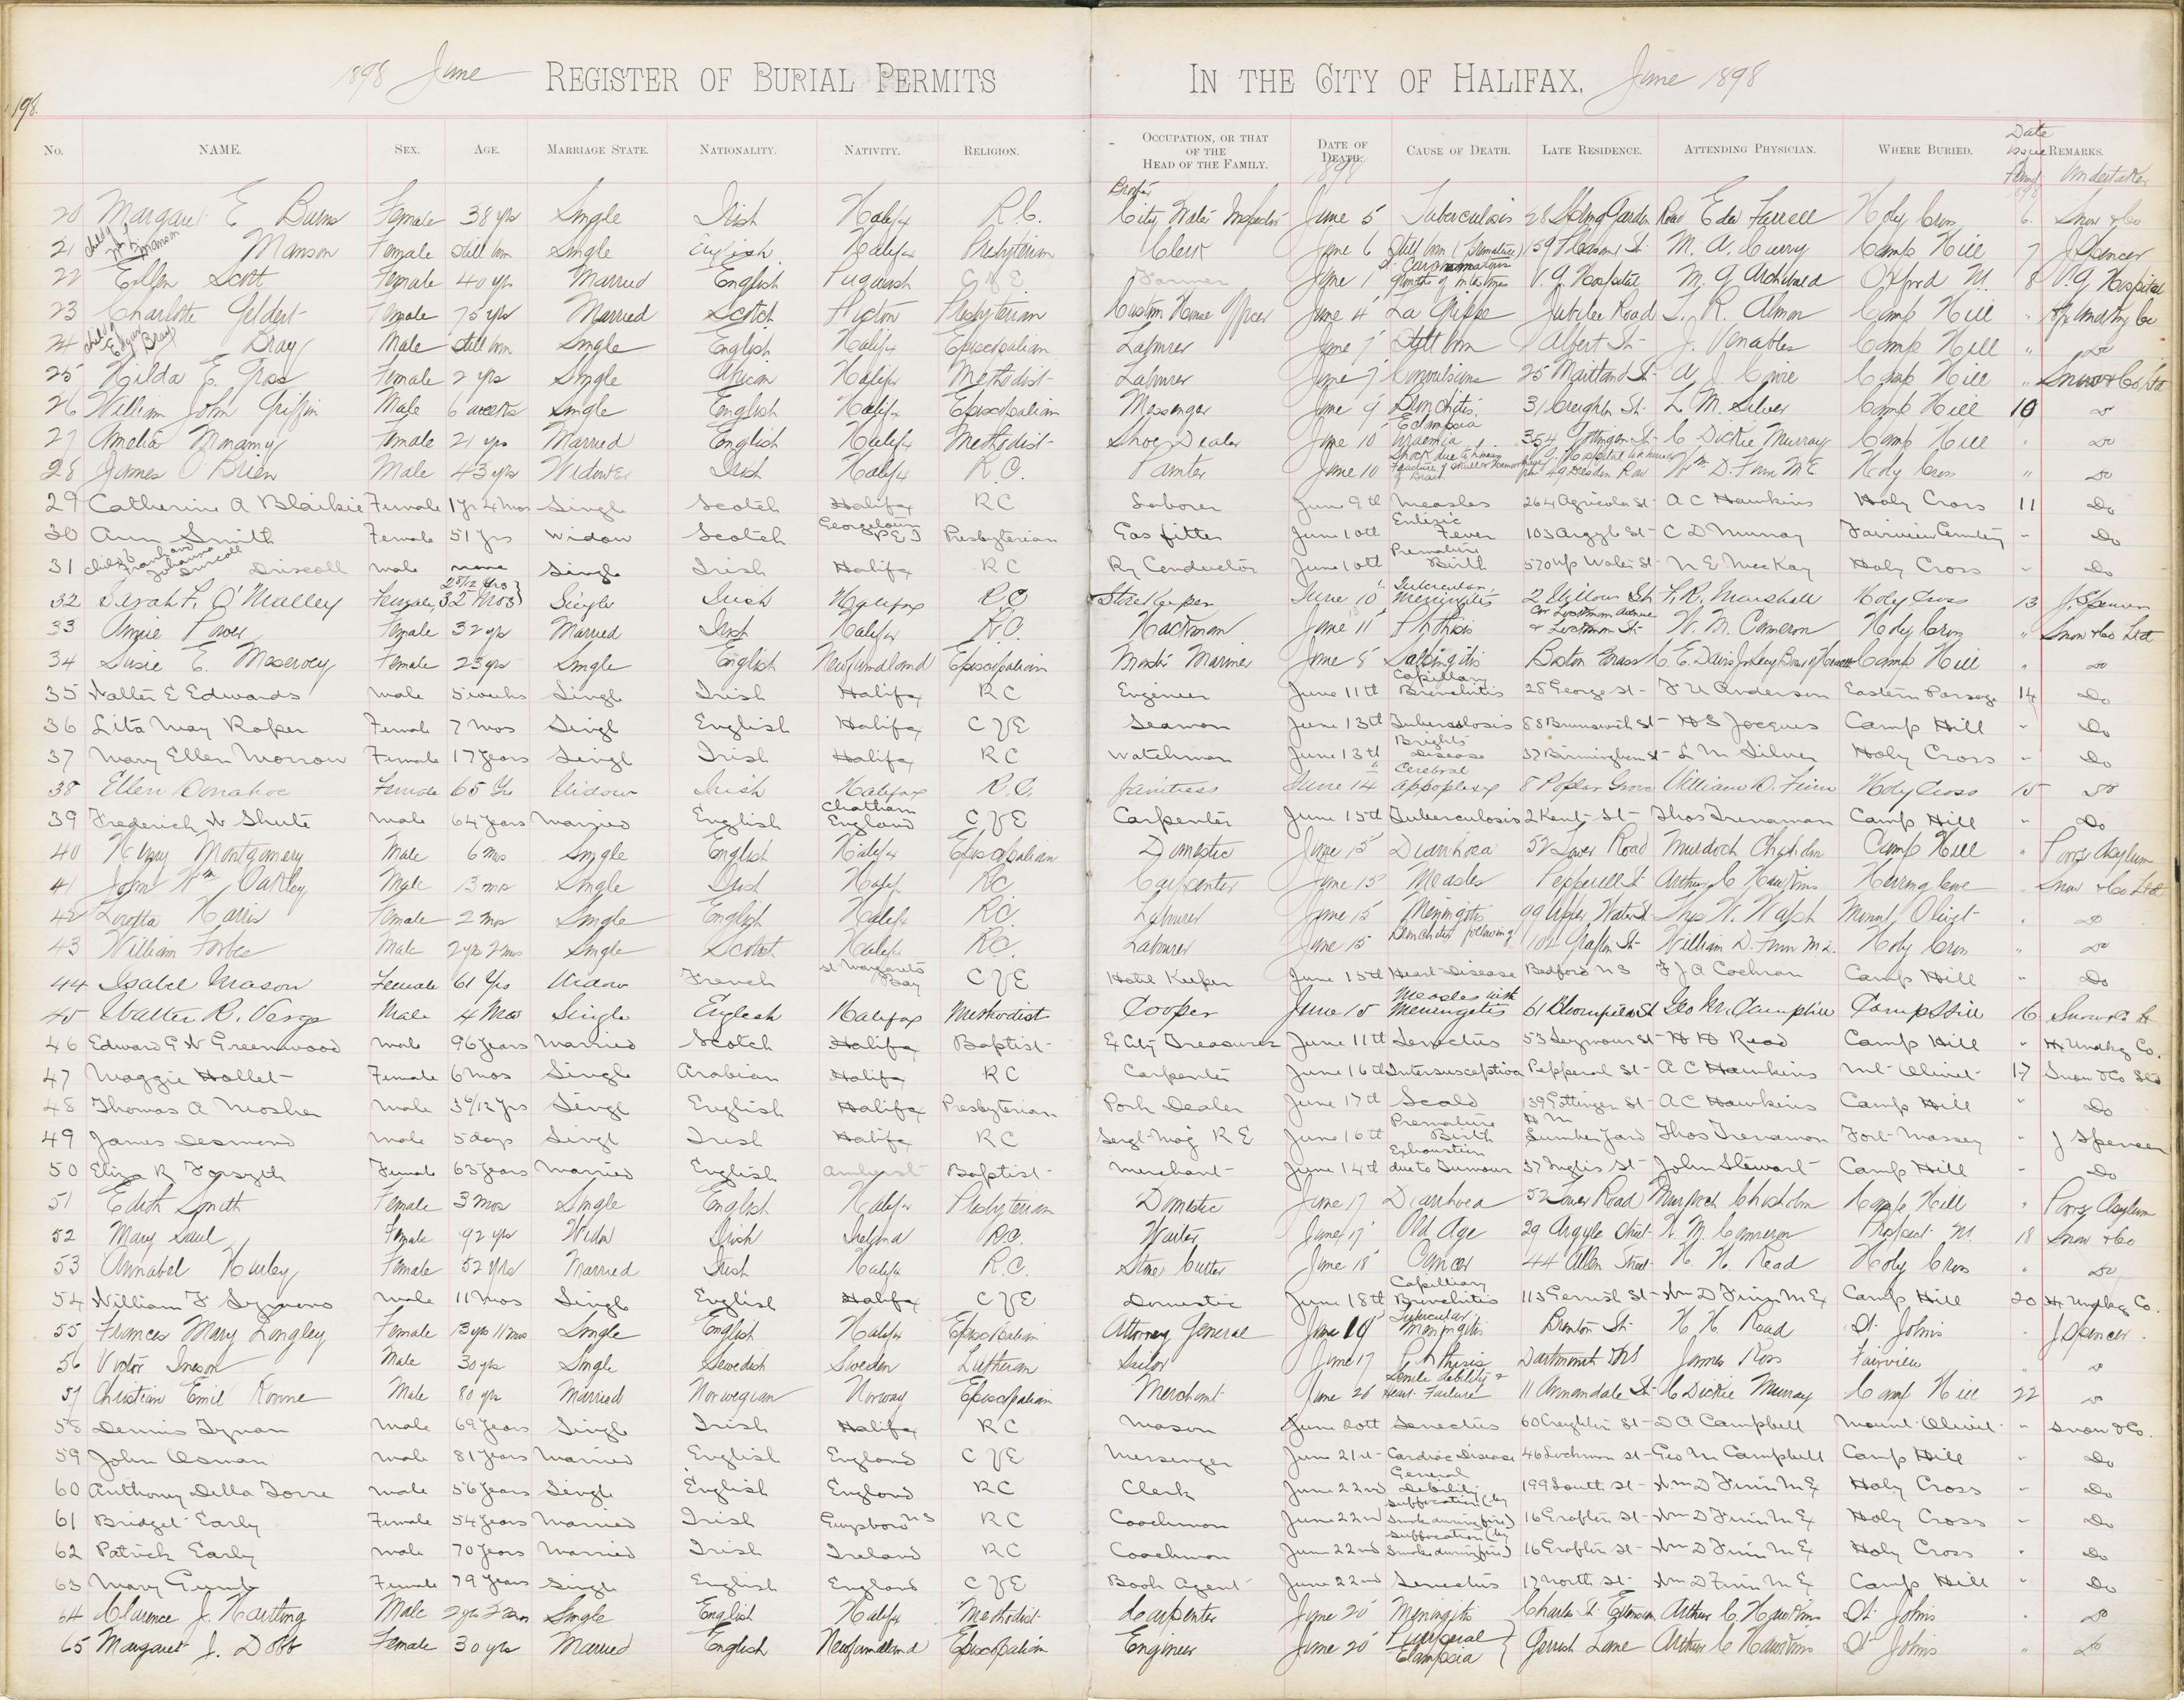 198.
1898 June REGISTER OF BURIAL PERMITS IN THE CITY OF HALIFAX. June 1898
No. NAME. SEX. AGE. MARRIAGE STATE. NATIONALITY. NATIVITY. RELIGION. OCCUPATION, OR THAT OF THE HEAD OF THE FAMILY. DATE OF DEATH. 1898 CAUSE OF DEATH. LATE RESIDENCE. ATTENDING PHYSICIAN. WHERE BURIED. Date Issue Permit 1898 REMARKS. Undertaker
20 Margaret E Burns Female 38 yrs Single Irish Halifax R.C. Brother City Water Inspector June 5 Tuberculosis 28 Spring Garden Road Edw Farrell Holy Cross 6. Snow & Co
21 child of Manson Female Still born Single English Halifax Presbyterian Clerk June 6 Still born (Premature) 59 St M. A. Curry Camp Hill 7 J Spencer
22 Ellen Scott Female 40 yrs Married English Pugwash C of E Farmer June 1 growth of intestines V. G. Hospital M. G Archibald Oxford 8 V. G Hospital
23 Charlotte Geldert Female 75 yrs Married Scotch Pictou Presbyterian Custom House Officer June 4 La Grippe Jubilee Road T. R. Almon Camp Hill "
24 child of Edgar Bray Bray Male Still born Single English Halifax Episcopalian Laburer June 7 Still born Albert St J. Venables Camp Hill " Do
25 Hilda E. Gross Female 2 yrs Single African Halifax Methodist Laburer June 7 Convulsions 25 Maitland St A J Cowie Camp Hill " Snow & Co Ltd
26 William John Griffin Male 6 weeks Single English Halifax Episcopalian Messenger June 9 Bronchitis 31 Creighton St. L. M. Silver Camp Hill 10 Do
27 Amelia Monamy Female 21 yrs Married English Halifax Methodist Shoe Dealer June 10 Eclampsia Uraemia 354 Gottingen St C Dickie Murray Camp Hill " Do
28 James O'Brien Male 43 yrs Widower Irish Halifax R.C. Painter June 10 Shock due to Fracture of skull & of Brain V. G. Hospital 49 Dresden Row Wm. D. Finn M.E. Holy Cross " Do
29 Catherine A Blaikie Female 1 yr 4 mos Single Scotch Halifax RC Laborer June 9th Measles 264 Agricola St A C Hawkins Holy Cross 11 Do
30 Ann Smith Female 51 yrs Widow Scotch Georgetown P E I Presbyterian Gas fitter June 10th Enteric Fever 103 Argyle St C D Murray Fairview Cemetery " Do
31 child of Frank and Johanna Driscoll Driscoll Male none Single Irish Halifax RC Ry Conductor June 10th Premature Birth 570 Up Water St N E MacKay Holy Cross " Do
32 Sarah F. O'Malley Female 2 8/12 yrs 32 mos Single Irish Halifax R.C. Store Keeper June 10" Tubercular Meningitis 2 Willow St F. R. Marshall Holy Cross 13 J. Spencer
33 Annie Power Female 32 yrs Married Irish Halifax R.C. Hackman June 11 Phthisis Cor Lockman Avenue & Lockman St W. M. Cameron Holy Cross " Snow & Co Ltd
34 Susie E. Meservey Female 23 yrs Single English Newfoundland Episcopalian Master Mariner June 8 Salpingitis Boston Mass C. E. Davis Jr Secy Board of Health Camp Hill " Do
35 Walter E Edwards Male 5 weeks Single Irish Halifax RC Engineer June 11th Capillary Bronchitis 28 George St F U Anderson Eastern Passage 14 Do
36 Lita May Roper Female 7 mos Single English Halifax C of E Seaman June 13th Tuberculosis 88 Brunswick St H S Jacques Camp Hill " Do
37 Mary Ellen Morrow Female 17 years Single Irish Halifax RC Watchman June 13th Brights Disease 37 Birmingham St L M Silver Holy Cross " Do
38 Ellen Donahoe Female 65 Yrs Widow Irish Halifax R.C. Janitress June 14" Cerebral appoplexy 8 Poplar Grove William D. Finn Holy Cross 15 Do
39 Frederick W Shute Male 64 years Married English Chatham England C of E Carpenter June 15th Tuberculosis 2 Kent St Thos Trenaman Camp Hill " Do
40 Henry Montgomery Male 6 mos Single English Halifax Episcopalian Domestic June 15 Diarrhoea 52 Tower Road Murdoch Chisholm Camp Hill " Poors Asylum
41 John Wm Oakley Male 13 mos Single Irish Halifax RC. Carpenter June 15 Measles Pepperell St Arthur C Hawkins Herring Cove Snow & Co Ltd
42 Loretta Harris Female 2 mos Single English Halifax R.C. Laburer June 15 Meningitis 99 Upper Water St Thos W. Walsh Mount Olivet " Do
43 William Forbes Male 2 yrs 2 mos Single Scotch Halifax R.C. Laburer June 15 Bronchitis following 102 Grafton St William D. Finn M.E. Holy Cross " Do
44 Isabel Mason Female 61 Yrs Widow French St Margarets Bay C of E Hotel Keeper June 15th Heart Disease Bedford N S F J A Cochran Camp Hill " Do
45 Walter R. Verge Male 4 Mos Single English Halifax Methodist Cooper June 15 Measles with Meningitis 61 Bloomfield St Geo M. Campbell Camp Hill 16 Snow & Co Lt
46 Edward G W Greenwood Male 96 years Married Scotch Halifax Baptist Ex City Treasurer June 11th Senectus 53 Seymour St H H Read Camp Hill " Hx Undtkg Co.
47 Maggie Hallet Female 6 mos Single Arabian Halifax RC Carpenter June 16th Intersusception Pepperal St A C Hawkins Mt Olivet 17 Snow & Co Ltd
48 Thomas A Mosher Male 3 9/12 yrs Single English Halifax Presbyterian Pork Dealer June 17th Scald 139 Gottingen St A C Hawkins Camp Hill " Do
49 James Desmond Male 5 days Single Irish Halifax RC Sergt Maj R E June 16th Premature Birth H M Lumber Yard Thos Trenaman Fort Massey " J Spencer
50 Eliza R Forsyth Female 63 years Married English Amherst Baptist Merchant June 14th Exhaustion due to Tumour 37 Inglis St John Stewart Camp Hill " Do
51 Edith Smith Female 3 mos Single English Halifax Presbyterian Domestic June 17 Diarrhoea 52 Tower Road Murdoch Chisholm Camp Hill " Poors Asylum
52 Mary Saul Female 92 yrs Widow Irish Ireland R.C. Waiter June 17 Old Age 29 Argyle Street W. M. Cameron Prospect 18 Snow & Co
53 Annabel Hurley Female 52 yrs Married Irish Halifax R.C. Stone Cutter June 18 Cancer 44 Allen Street H. H. Read Holy Cross " Do
54 William F Symons Male 11 mos Single English Halifax C of E Domestic June 18th Capilliary Bronchitis 113 Gerrish St Wm D Finn M Ex Camp Hill 20 Hx Undtkg Co.
55 Frances Mary Longley Female 13 yrs 11 mos Single English Halifax Episcopalian Attorney General June 19 Tubercular Meningitis Brenton St H. H. Read St Johns " J Spencer.
56 Victor Male 30 yrs Single Swedish Sweden Lutheran Sailor June 17 Phthisis Dartmouth N S James Ross Fairview " Do
57 Christian Emil Male 80 yrs Married Norwegian Norway Episcopalian Merchant June 20 Senile debility & Heart Failure 11 Annandale St C Dickie Murray Camp Hill 22 Do
58 Dennis Tynan Male 69 years Single Irish Halifax RC Mason June 20th Senectus 60 Creighton St D A Campbell Mount Olivet " Snow & Co.
59 John Osman Male 81 years Married English England C of E Messenger June 21st Cardiac Disease 46 Lockman St Geo M Campbell Camp Hill " Do
60 Anthony Della Torre Male 56 years Single English England RC Clerk June 22nd General Debility 199 South St Wm D Finn M Ex Holy Cross " Do
61 Bridget Early Female 54 years Married Irish Guysboro N S RC Coachman June 22nd Suffocation (by smoke during fire) 16 Grafton St Wm D Finn M Ex Holy Cross " Do
62 Patrick Early Male 70 years Married Irish Ireland RC Coachman June 22nd Suffocation (by smoke during fire) 16 Grafton St Wm D Finn M Ex Holy Cross " Do
63 Mary Gumb Female 79 years Single English England C of E Book Agent June 22nd Senectus 17 North St Wm D Finn M Ex Camp Hill " Do
64 Clarence J. Hartling Male 2 yrs Single English Halifax Methodist Carpenter June 20 Meningitis Charles St Extension Arthur C Hawkins St Johns " Do
65 Margaret J. Dobb Female 30 yrs Married English Newfoundland Episcopalian Engineer June 20 Puerperal Eclampsia Gerrish Lane Arthur C Hawkins St Johns " Do